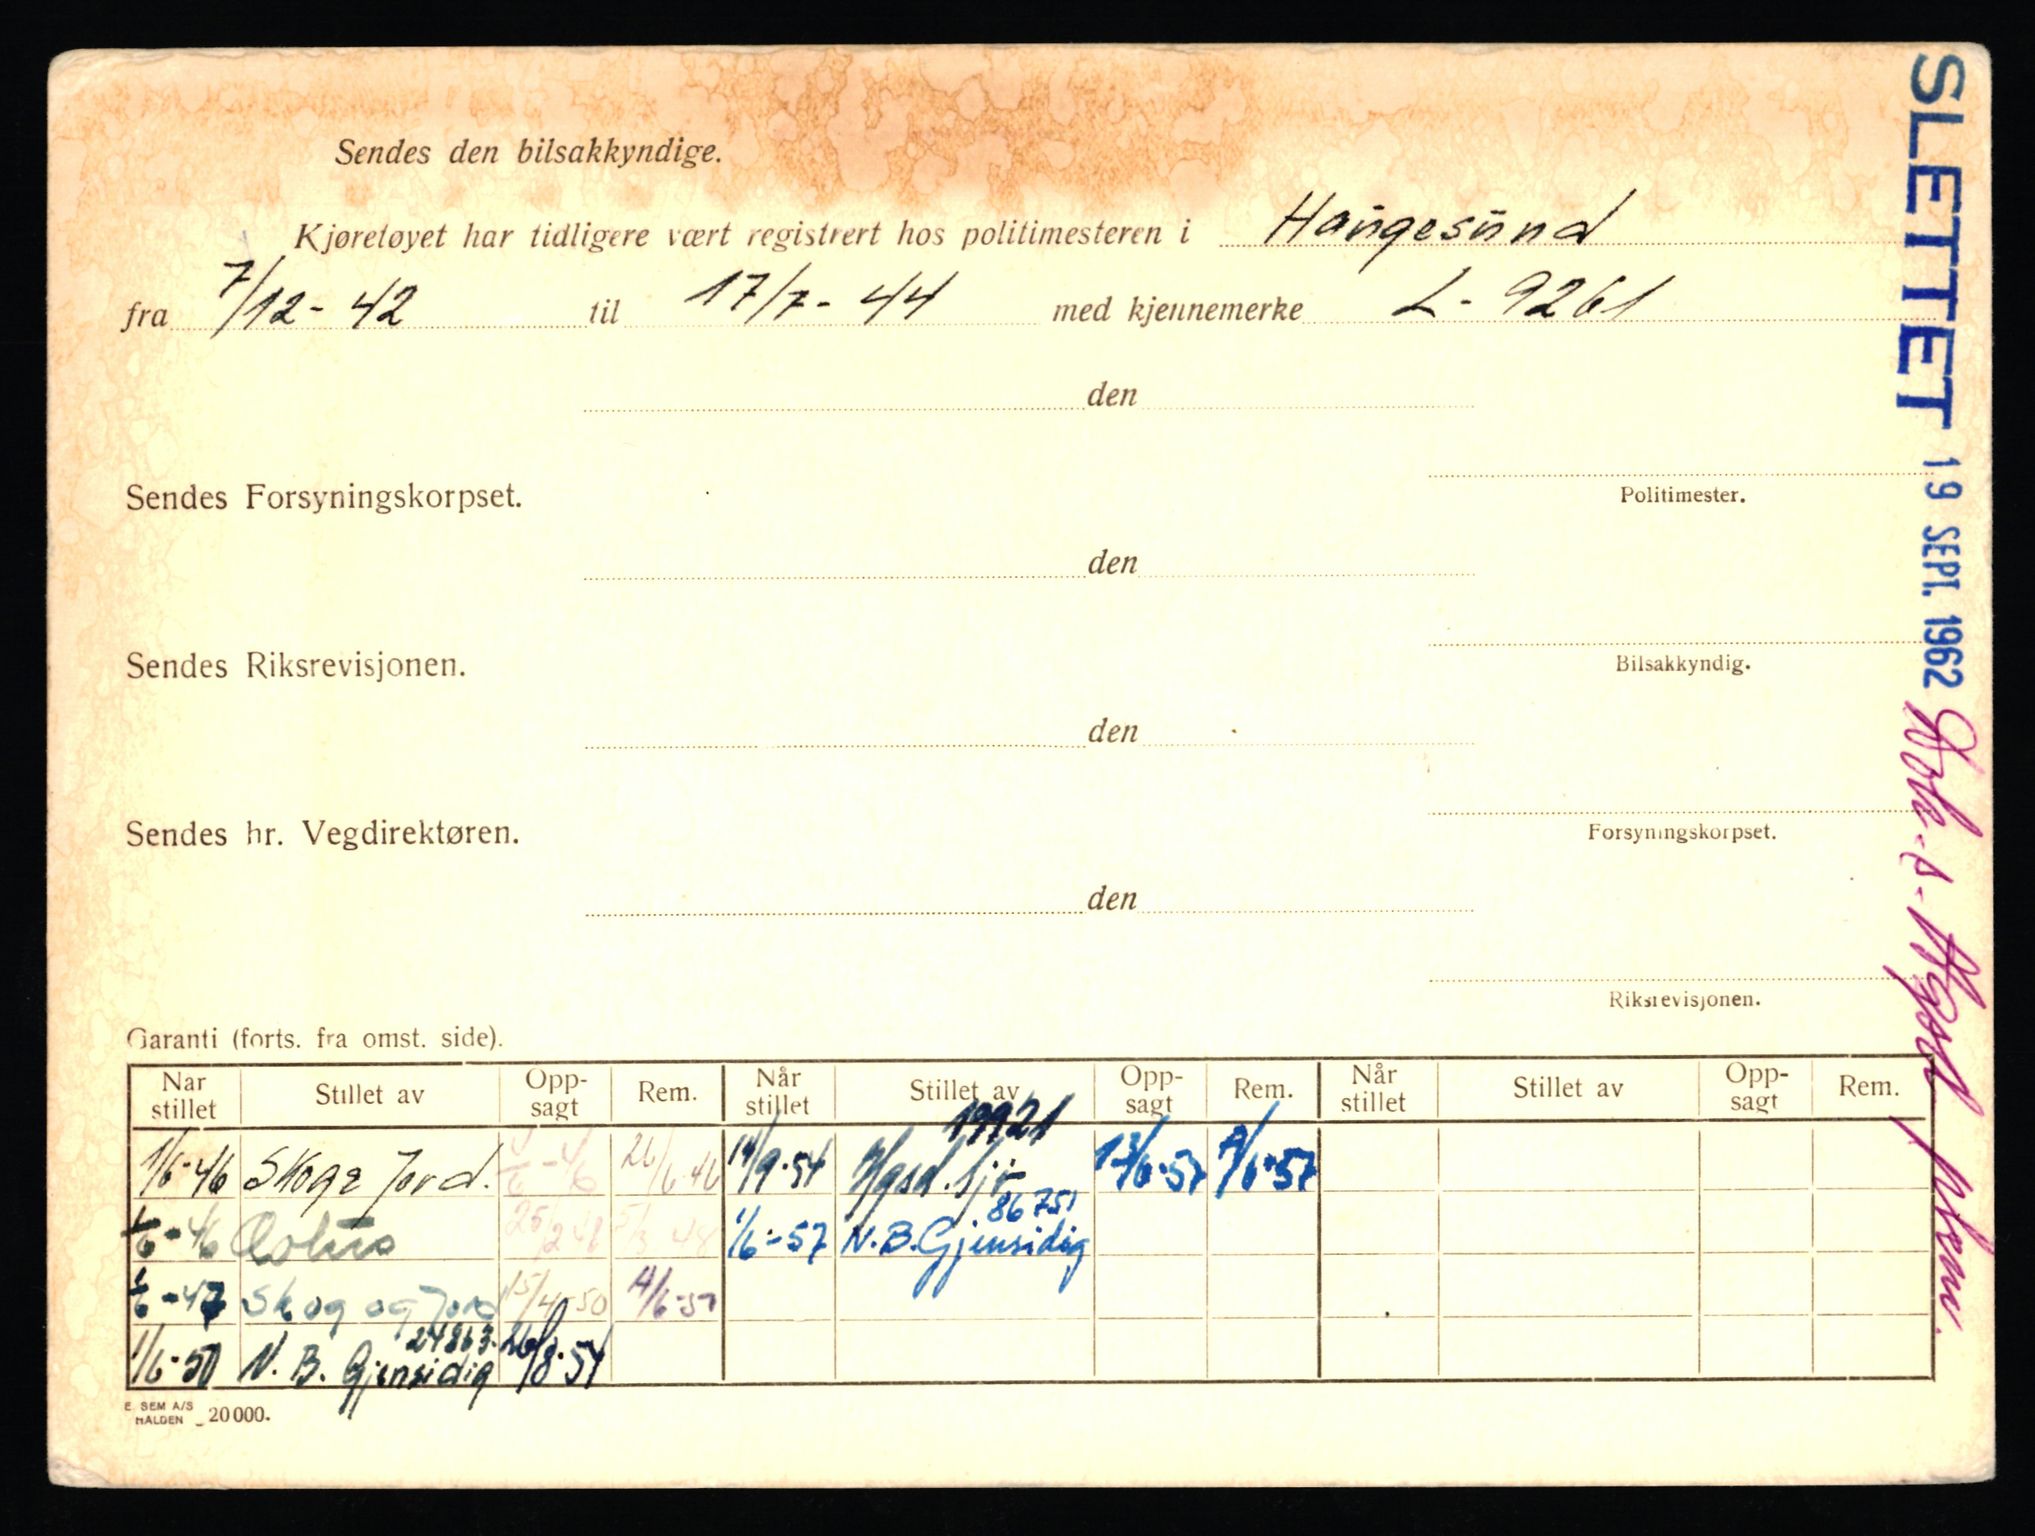 Sendes den bilsakkyndige.
Kjøretøyet har tidligere vært registrert hos politimesteren i Haugesund
fra 7/12-42 til 17/7-44 med kjennemerke L-9261
den
Politimester.
Sendes Forsyningskorpset.
den
Bilsakkyndig.
Sendes Riksrevisjonen.
den
Forsyningskorpset.
Sendes hr. Vegdirektøren.
den
Riksrevisjonen.
Garanti (forts. fra omst. side).
Når stillet Stillet av Opp-sagt Rem. Når stillet Stillet av Opp-sagt Rem. Når stillet Stillet av Opp-sagt Rem.
19921
1/6-46 Skog & Jord. 26/6 46 14/9-54 Hgsd. Sjø 13/6-57 4/6-57
86751
1/6-46 25/2 48 5/3 48 1/6-57 N.B. Gjensidig
1/6-47 Skog og Jord 15/4-50 4/6-51
24863
1/6-50 N.B. Gjensidig 26/8-54
E. SEM A/S
HALDEN _ 20000.
SLETTET 19 SEPT. 1962